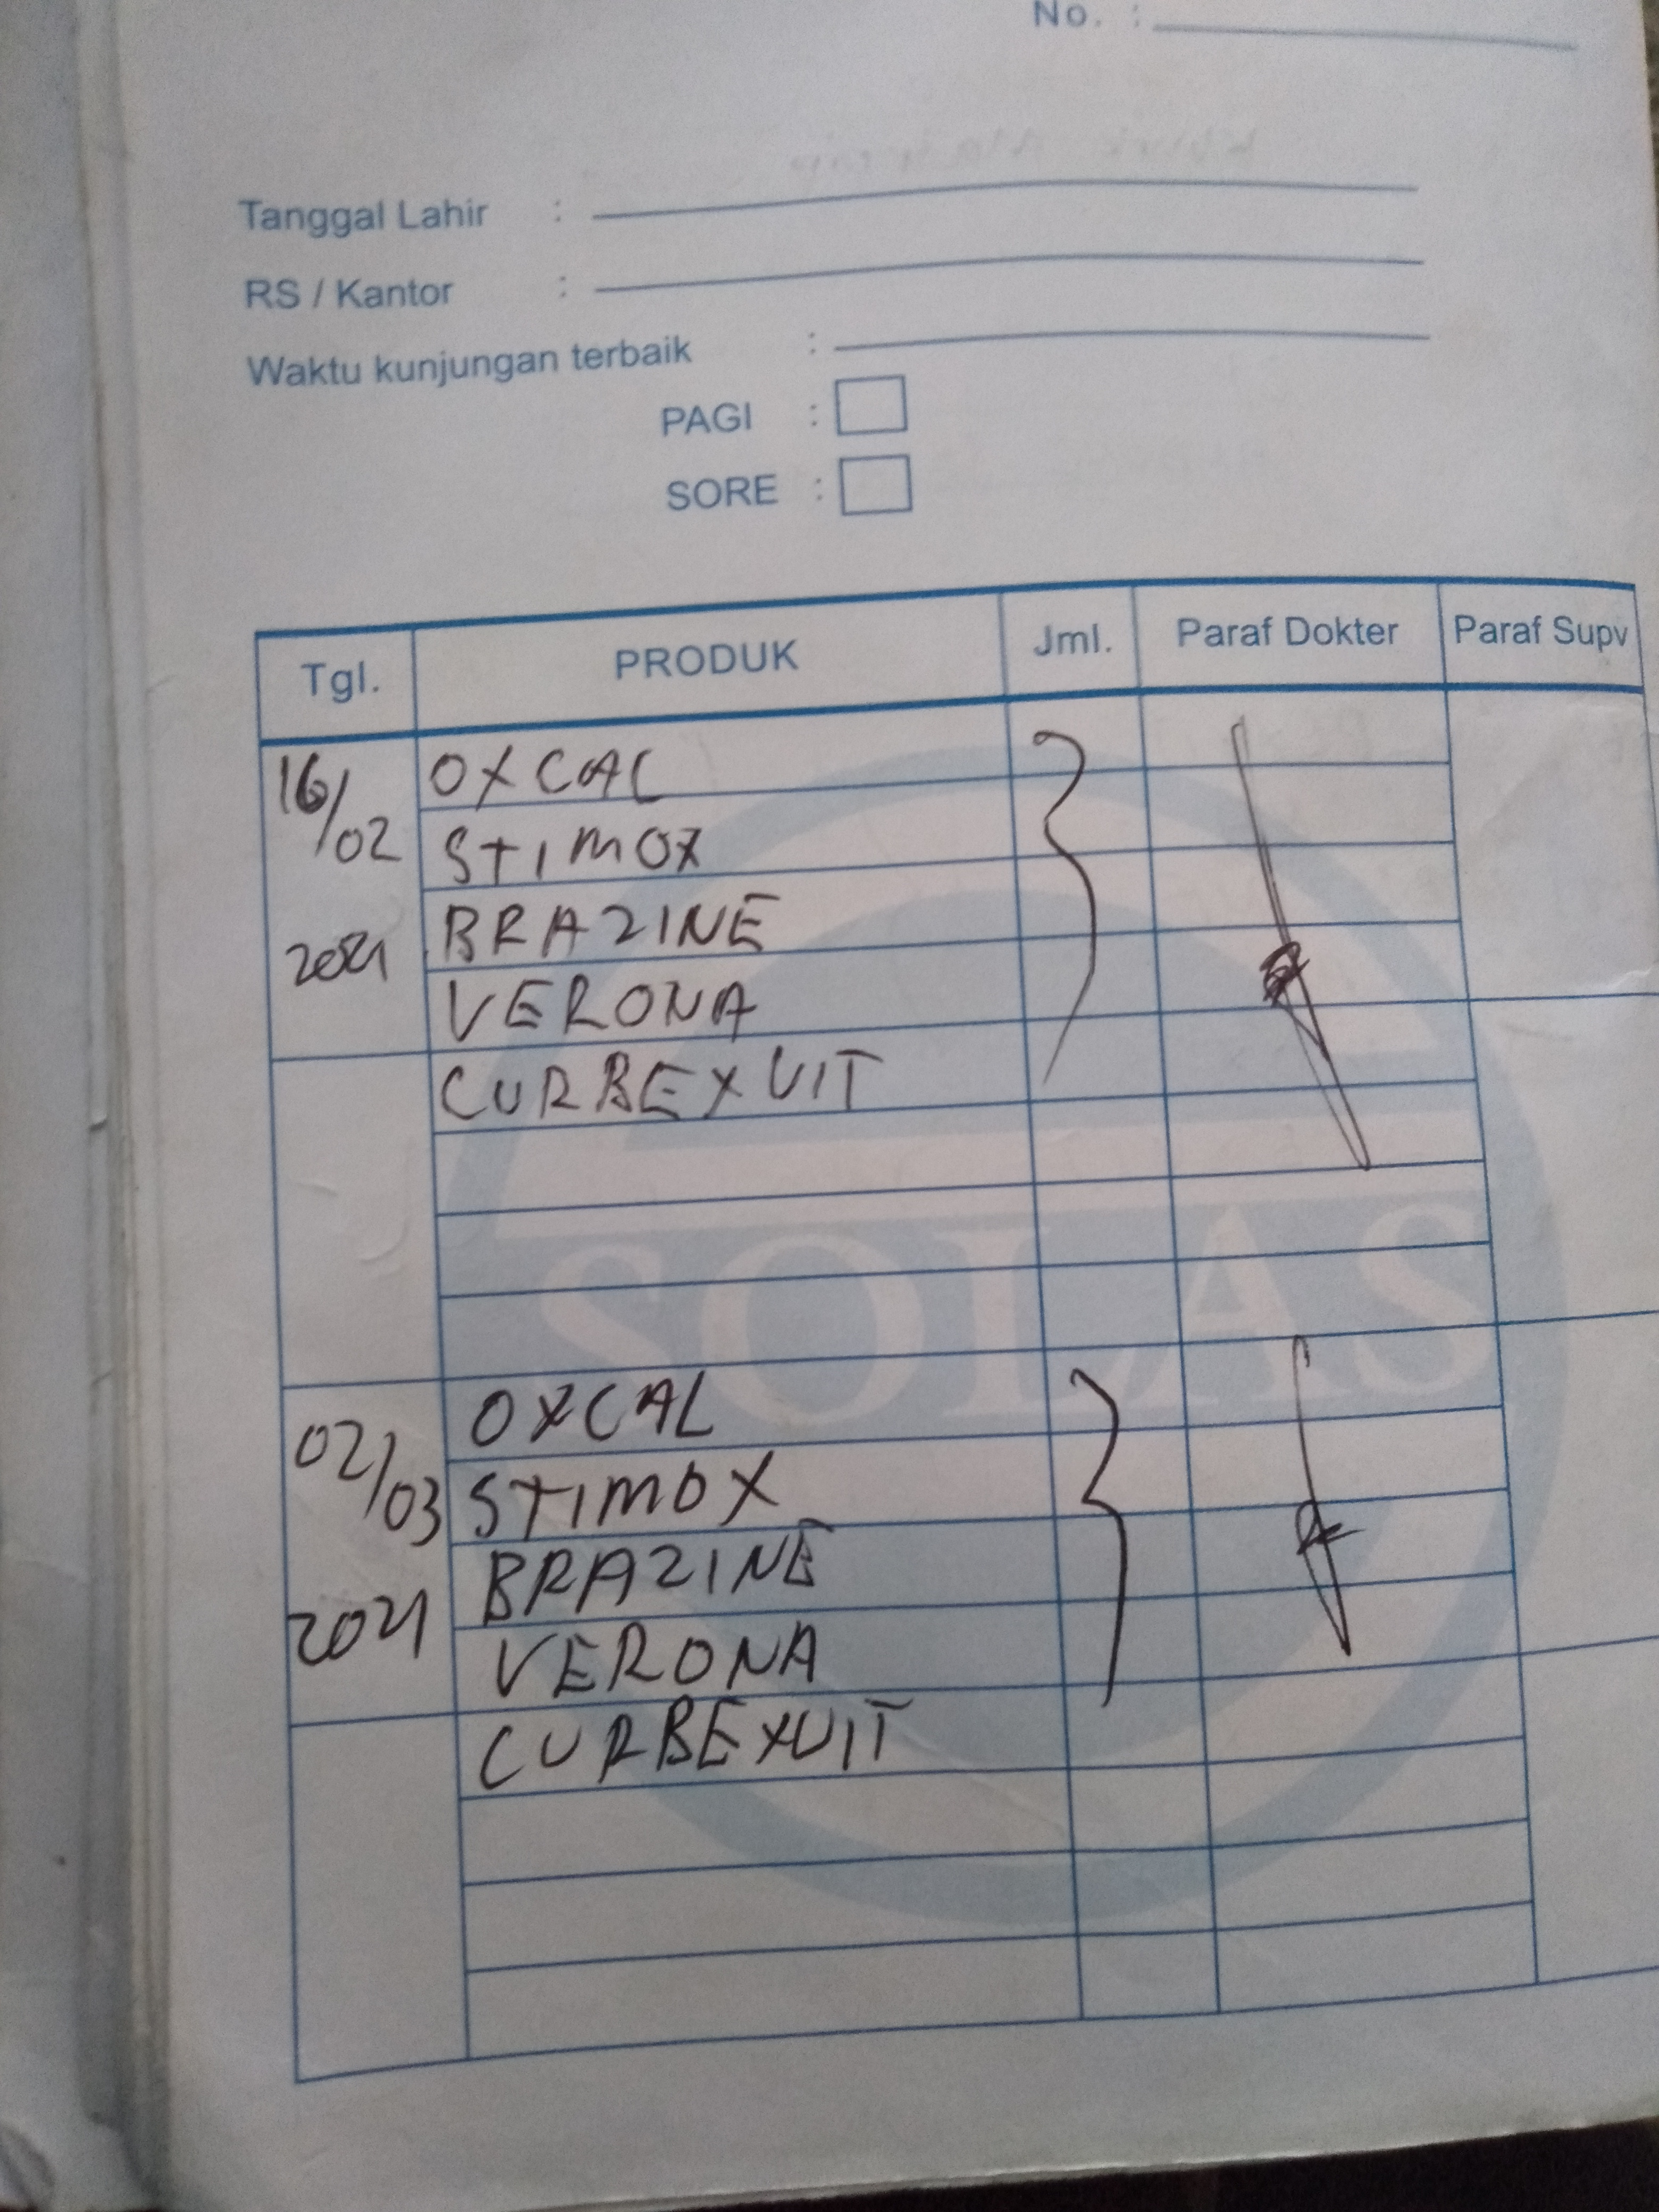 No. :
Tanggal Lahir :
RS / Kantor :
Waktu kunjungan terbaik :
PAGI :
SORE :
Tgl. PRODUK Jml. Paraf Dokter Paraf Supv
16/02 2021 OXCAL
STIMOX
BRAZINE
VERONA
CURBEXVIT
SOLAS
02/03 2021 OXCAL
STIMOX
BRAZINE
VERONA
CURBEXVIT